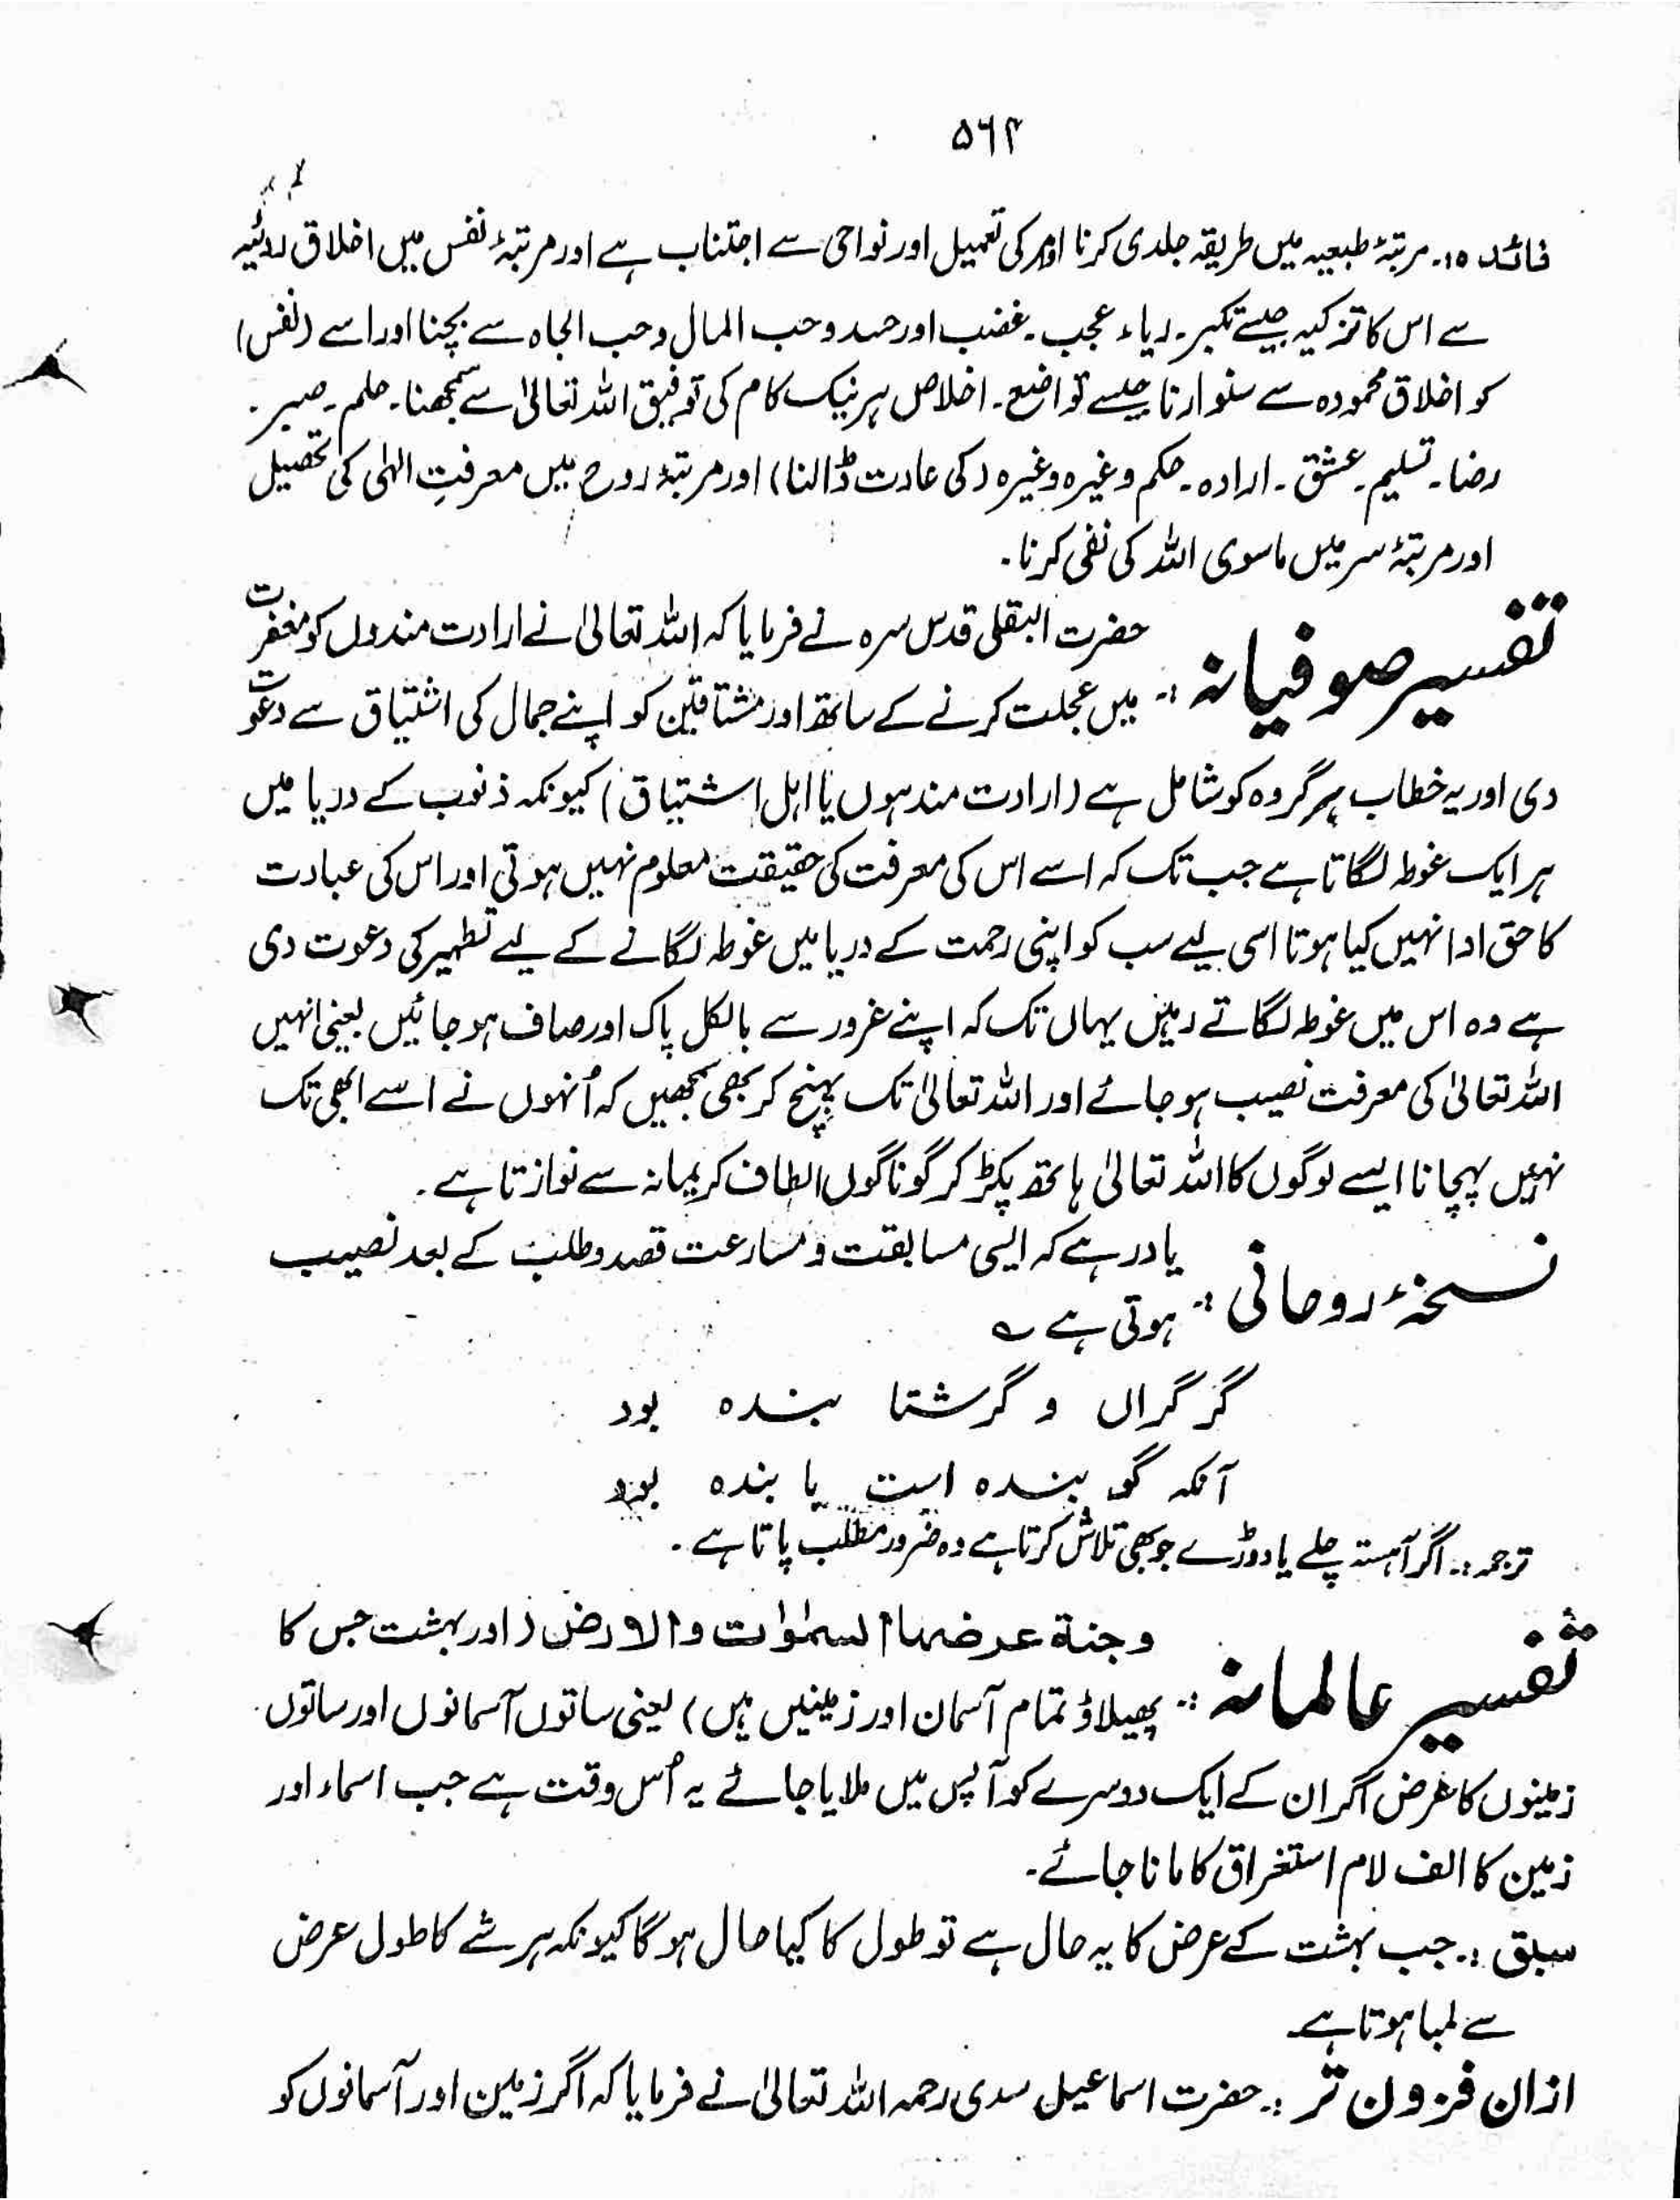 ۵۶۴
فائدہ ۱۵۔ مرتبۂ طبعیہ میں طریقہ جلدی کرنا اوامر کی تعمیل اور نواحی سے اجتناب ہے اور مرتبۂ نفس میں اخلاق ردئیہ
سے اس کا تزکیہ جیسے تکبر۔ ریاء عجب۔ غضب اور حسد و حب المال و حب الجاہ سے بچنا اور اسے (نفس)
کو اخلاق محمودہ سے سنوارنا جیسے تواضع۔ اخلاص ہر نیک کام کی توفیق اللہ تعالیٰ سے سمجھنا۔ حلم۔ صبر۔
رضا۔ تسلیم۔ عشق۔ ارادہ۔ حکم وغیرہ وغیرہ (کی عادت ڈالنا) اور مرتبۂ روح میں معرفتِ الہٰی کی تحصیل
اور مرتبۂ سر میں ماسوی اللہ کی نفی کرنا۔
تفسیر صوفیانہ :۔ حضرت البقلی قدس سرہ نے فرمایا کہ اللہ تعالیٰ نے ارادت مندوں کو مغفرت
میں عجلت کرنے کے ساتھ اور مشتاقین کو اپنے جمال کی اشتیاق سے دعوت
دی اور یہ خطاب ہر گروہ کو شامل ہے (ارادت مند ہوں یا اہل اشتیاق) کیونکہ ذنوب کے دریا میں
ہر ایک غوطہ لگاتا ہے جب تک کہ اسے اس کی معرفت کی حقیقت معلوم نہیں ہوتی اور اس کی عبادت
کا حق ادا نہیں کیا ہوتا اسی لیے سب کو اپنی رحمت کے دریا میں غوطہ لگانے کے لیے تطہیر کی دعوت دی
ہے وہ اس میں غوطہ لگاتے رہیں یہاں تک کہ اپنے غرور سے بالکل پاک اور صاف ہو جائیں یعنی انہیں
اللہ تعالیٰ کی معرفت نصیب ہو جائے اور اللہ تعالیٰ تک پہنچ کر بھی سمجھیں کہ اُنہوں نے اسے ابھی تک
نہیں پہچانا ایسے لوگوں کا اللہ تعالیٰ ہاتھ پکڑ کر گوناگوں الطاف کریمانہ سے نوازتا ہے۔
نسخۂ روحانی :۔ یاد رہے کہ ایسی مسابقت و مسارعت قصد و طلب کے بعد نصیب
ہوتی ہے ؎
گر گراں و گر شتا بندہ بود
آنکہ گو بندہ است یا بندہ بود
ترجمہ :۔ اگر آہستہ چلے یا دوڑے جو بھی تلاش کرتا ہے وہ ضرور مطلب پاتا ہے۔
تفسیر عالمانہ :۔ وجنة عرضها السمٰوٰت والارض (اور بہشت جس کا
پھیلاؤ تمام آسمان اور زمینیں ہیں) یعنی ساتوں آسمانوں اور ساتوں
زمینوں کا عرض اگر ان کے ایک دوسرے کو آپس میں ملایا جائے یہ اُس وقت ہے جب اسماء اور
زمین کا الف لام استغراق کا مانا جائے۔
سبق :۔ جب بہشت کے عرض کا یہ حال ہے تو طول کا کیا حال ہو گا کیونکہ ہر شے کا طول عرض
سے لمبا ہوتا ہے۔
ازان فزون تر :۔ حضرت اسماعیل سدی رحمہ اللہ تعالیٰ نے فرمایا کہ اگر زمین اور آسمانوں کو